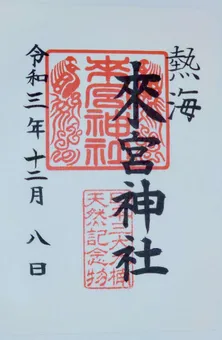 熱海
來宮神社
來宮神社
天然記念物
令和三年十二月八日